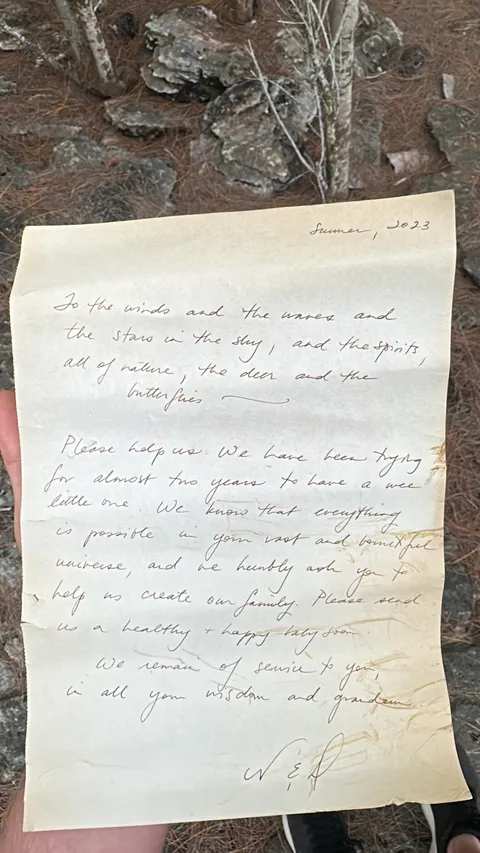 Summer, 2023
To the winds and the waves and
the stars in the sky, and the spirits,
all of nature, the deer and the
butterflies —
Please help us. We have been trying
for almost two years to have a wee
little one. We know that everything
is possible in your vast and bountiful
universe, and we humbly ask you to
help us create our family. Please send
us a healthy + happy baby soon.
We remain of service to you,
in all your wisdom and grandeur.
N & D